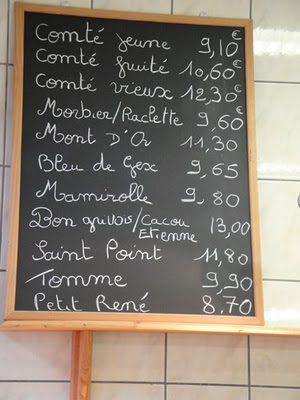 Comté jeune 9,10€
Comté fruité 10,60€
Comté vieux 12,30€
Morbier/Raclette 9,60€
Mont D'Or 11,30
Bleu de Gex 9,65
Mamirolle 9,80
Bon gruvois/Cacou 13,00
Etienne
Saint Point 11,80
Tomme 9,90
Petit René 8,70